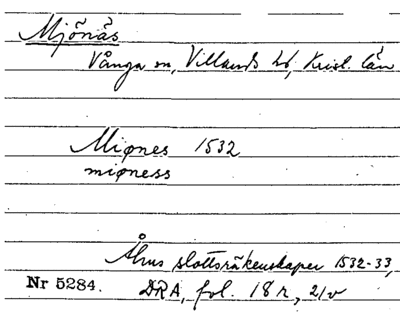 Mjönäs
Vånga sn, Villands hd, Krist. län
Miønes 1532
miøness
Åhus slottsräkenskaper 1532-33,
Nr 5284. DRA, fol. 18r, 21v